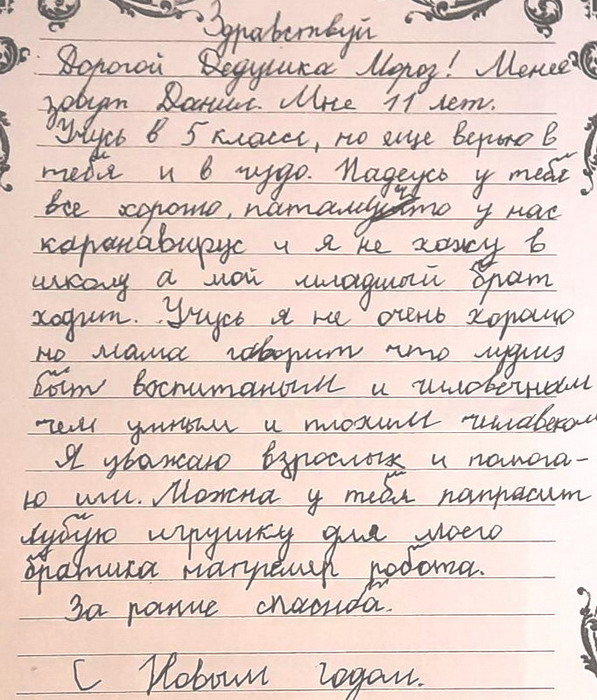 Здравствуй
Дорогой Дедушка Мороз! Менее
зовут Данил. Мне 11 лет.
Учусь в 5 классе, но еще верью в
тебя и в чудо. Надеусь у тебя
все хорошо, патамучто у нас
каранавирус и я не хажу в
школу а мой младшый брат
ходит. Учусь я не очень хорашо
но мама говорит что лудше
быт воспитаным и чиловечным
чем умным и плохим чиловеком
Я уважаю взрослых и помога-
ю или. Можна у тебя папрасит
лубую игрушку для моего
братика напремер робота.
За рание спасиба.
С Новым годом.